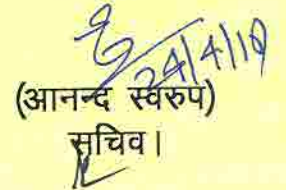 24/4/19
(आनन्द स्वरुप)
सचिव।